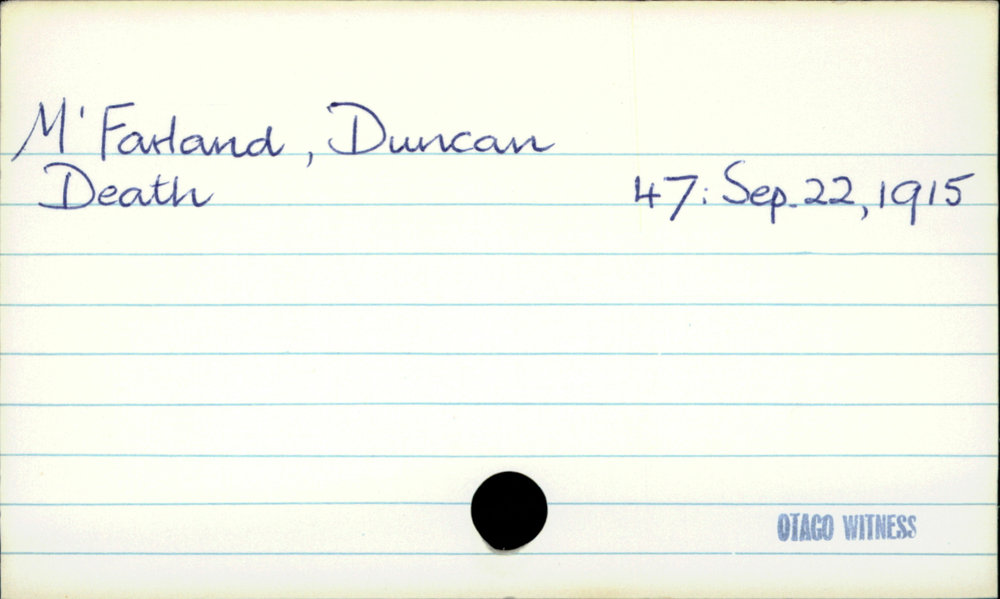 M' Farland, Duncan
Death 47: Sep. 22, 1915
OTAGO WITNESS